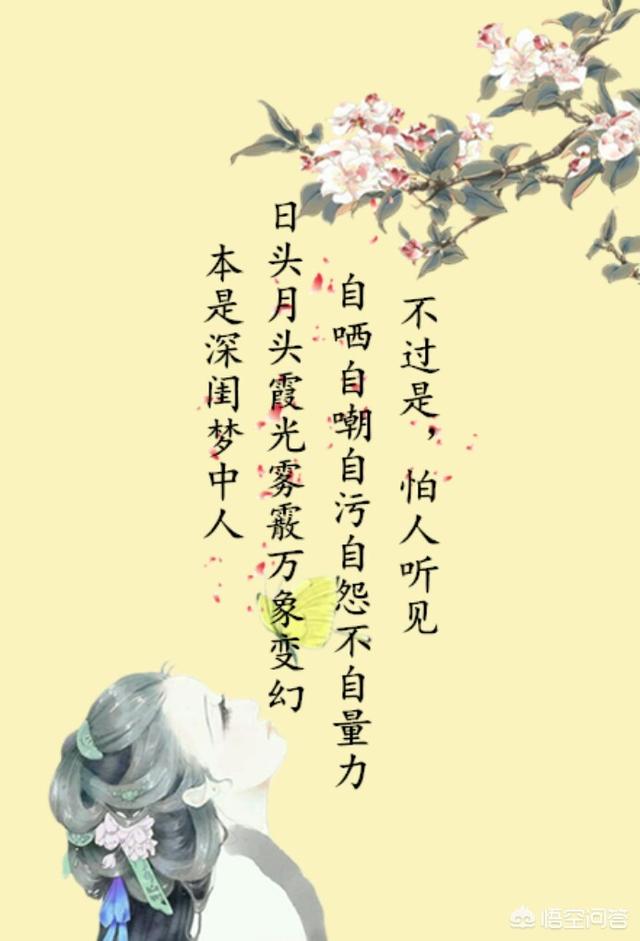 不过是，怕人听见
自哂自嘲自污自怨不自量力
日头月头霞光雾霰万象变幻
本是深闺梦中人
悟空问答